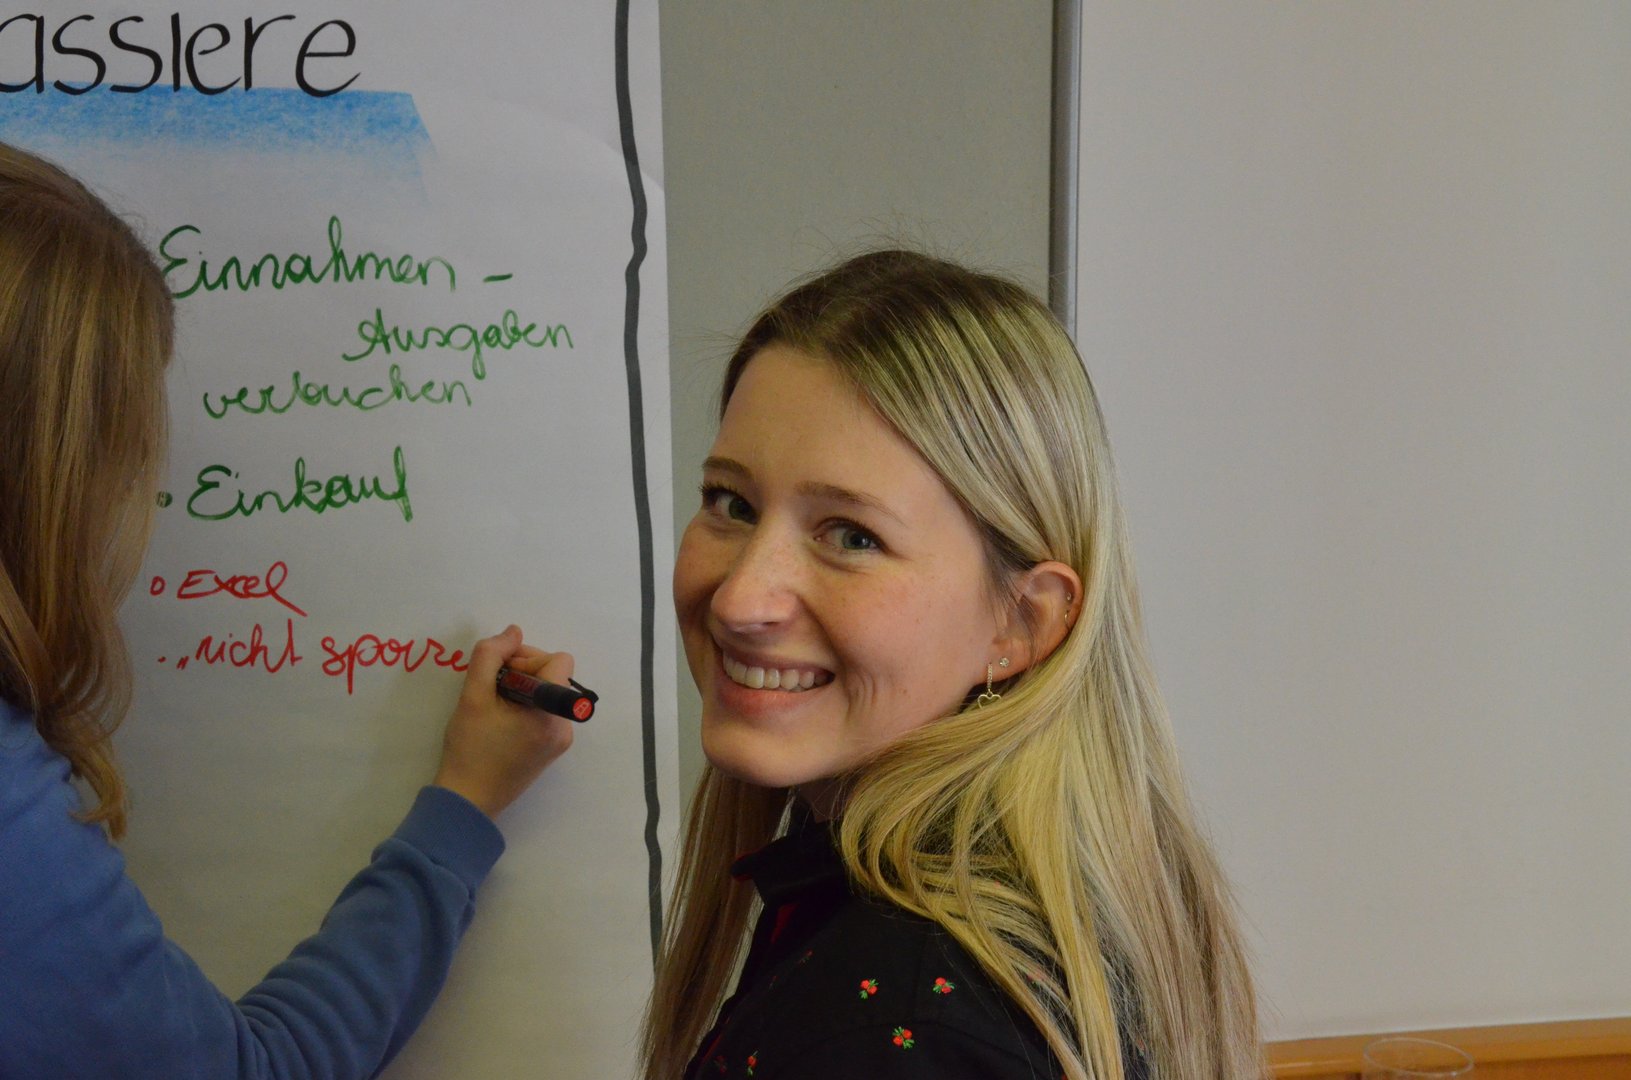 assiere
Einnahmen -
Ausgaben
verbuchen
• Einkauf
o Excel
. „nicht